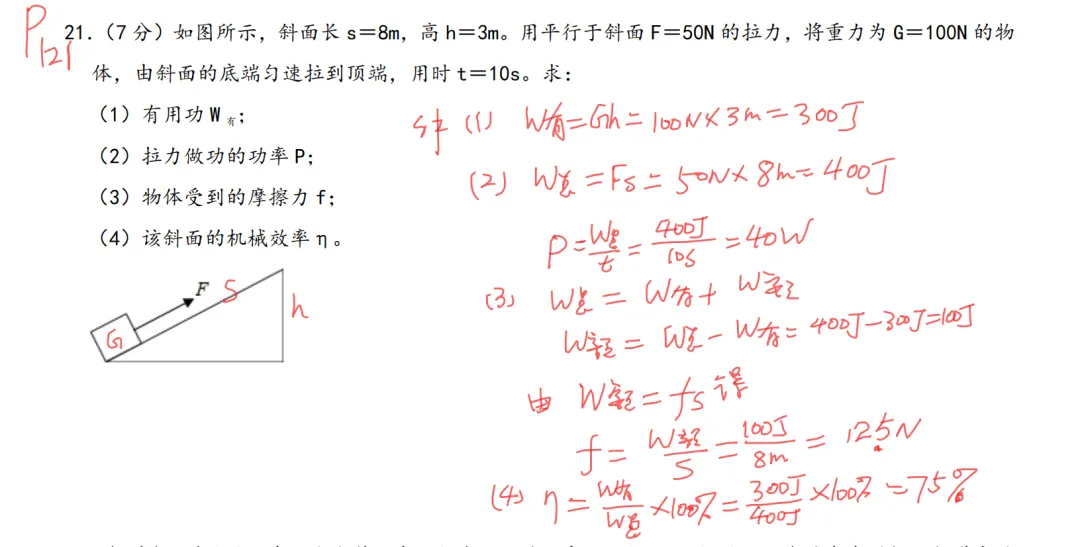 P121
21.(7分)如图所示，斜面长 s＝8m，高 h＝3m。用平行于斜面 F＝50N 的拉力，将重力为 G＝100N 的物
体，由斜面的底端匀速拉到顶端，用时 t＝10s。求：
(1)有用功 W有；
(2)拉力做功的功率 P；
(3)物体受到的摩擦力 f；
(4)该斜面的机械效率 η。
F S
G
h
(1) W有=Gh=100N×3m=300J
(2) W总=Fs=50N×8m=400J
P=W总/t=400J/10s=40W
(3) W总=W有+W额
W额=W总-W有=400J-300J=100J
由 W额=fs 得
f=W额/S=100J/8m=12.5N
(4) η=W有/W总×100%=300J/400J×100%=75%